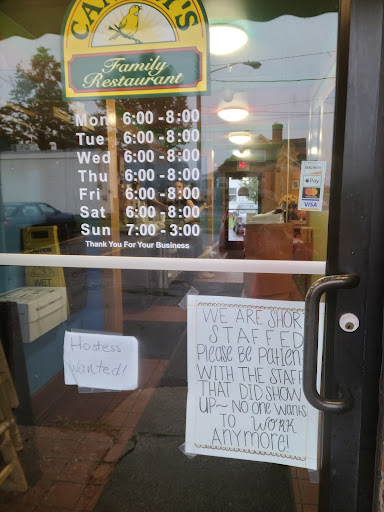 Family
Restaurant
Mon 6:00 - 8:00
Tue 6:00 - 8:00
Wed 6:00 - 8:00
Thu 6:00 - 8:00
Fri 6:00 - 8:00
Sat 6:00 - 8:00
Sun 7:00 - 3:00
Thank You For Your Business
Pay
VISA
WET
Hostess
Wanted!
WE ARE SHOR
STAFFED
Please Be Patien
WITH THE STAFF
THAT DID SHOW
UP~ NO one wants
TO WORK
ANYMORE!